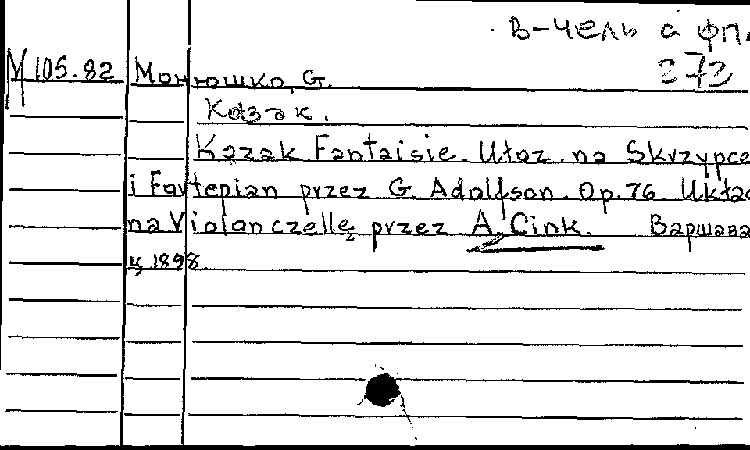 в-чель а фп.
273
М 105.82 Монюшко, G.
Казак.
Kozak Fantaisie. Ułoz. na Skrzypce
i Fortepian przez G. Adolfson. Op. 76 Układ
na Violonczellę przez A. Cink. Варшава
ц 1898.